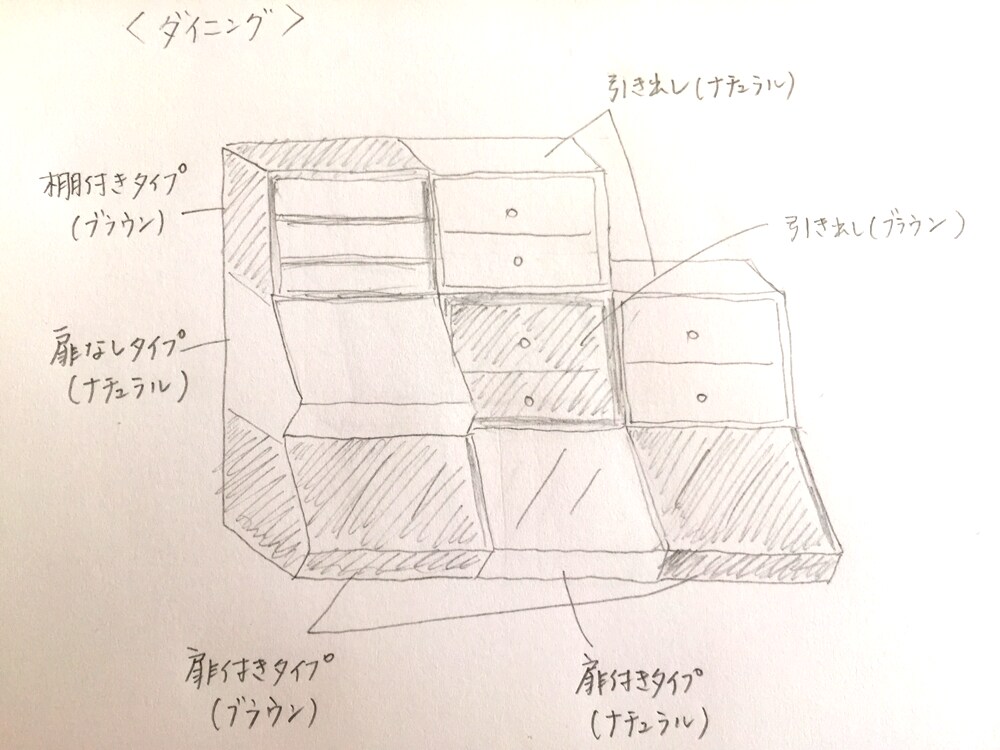 〈ダイニング〉
引き出し(ナチュラル)
棚付きタイプ
(ブラウン)
引き出し(ブラウン)
扉なしタイプ
(ナチュラル)
扉付きタイプ
(ブラウン)
扉付きタイプ
(ナチュラル)